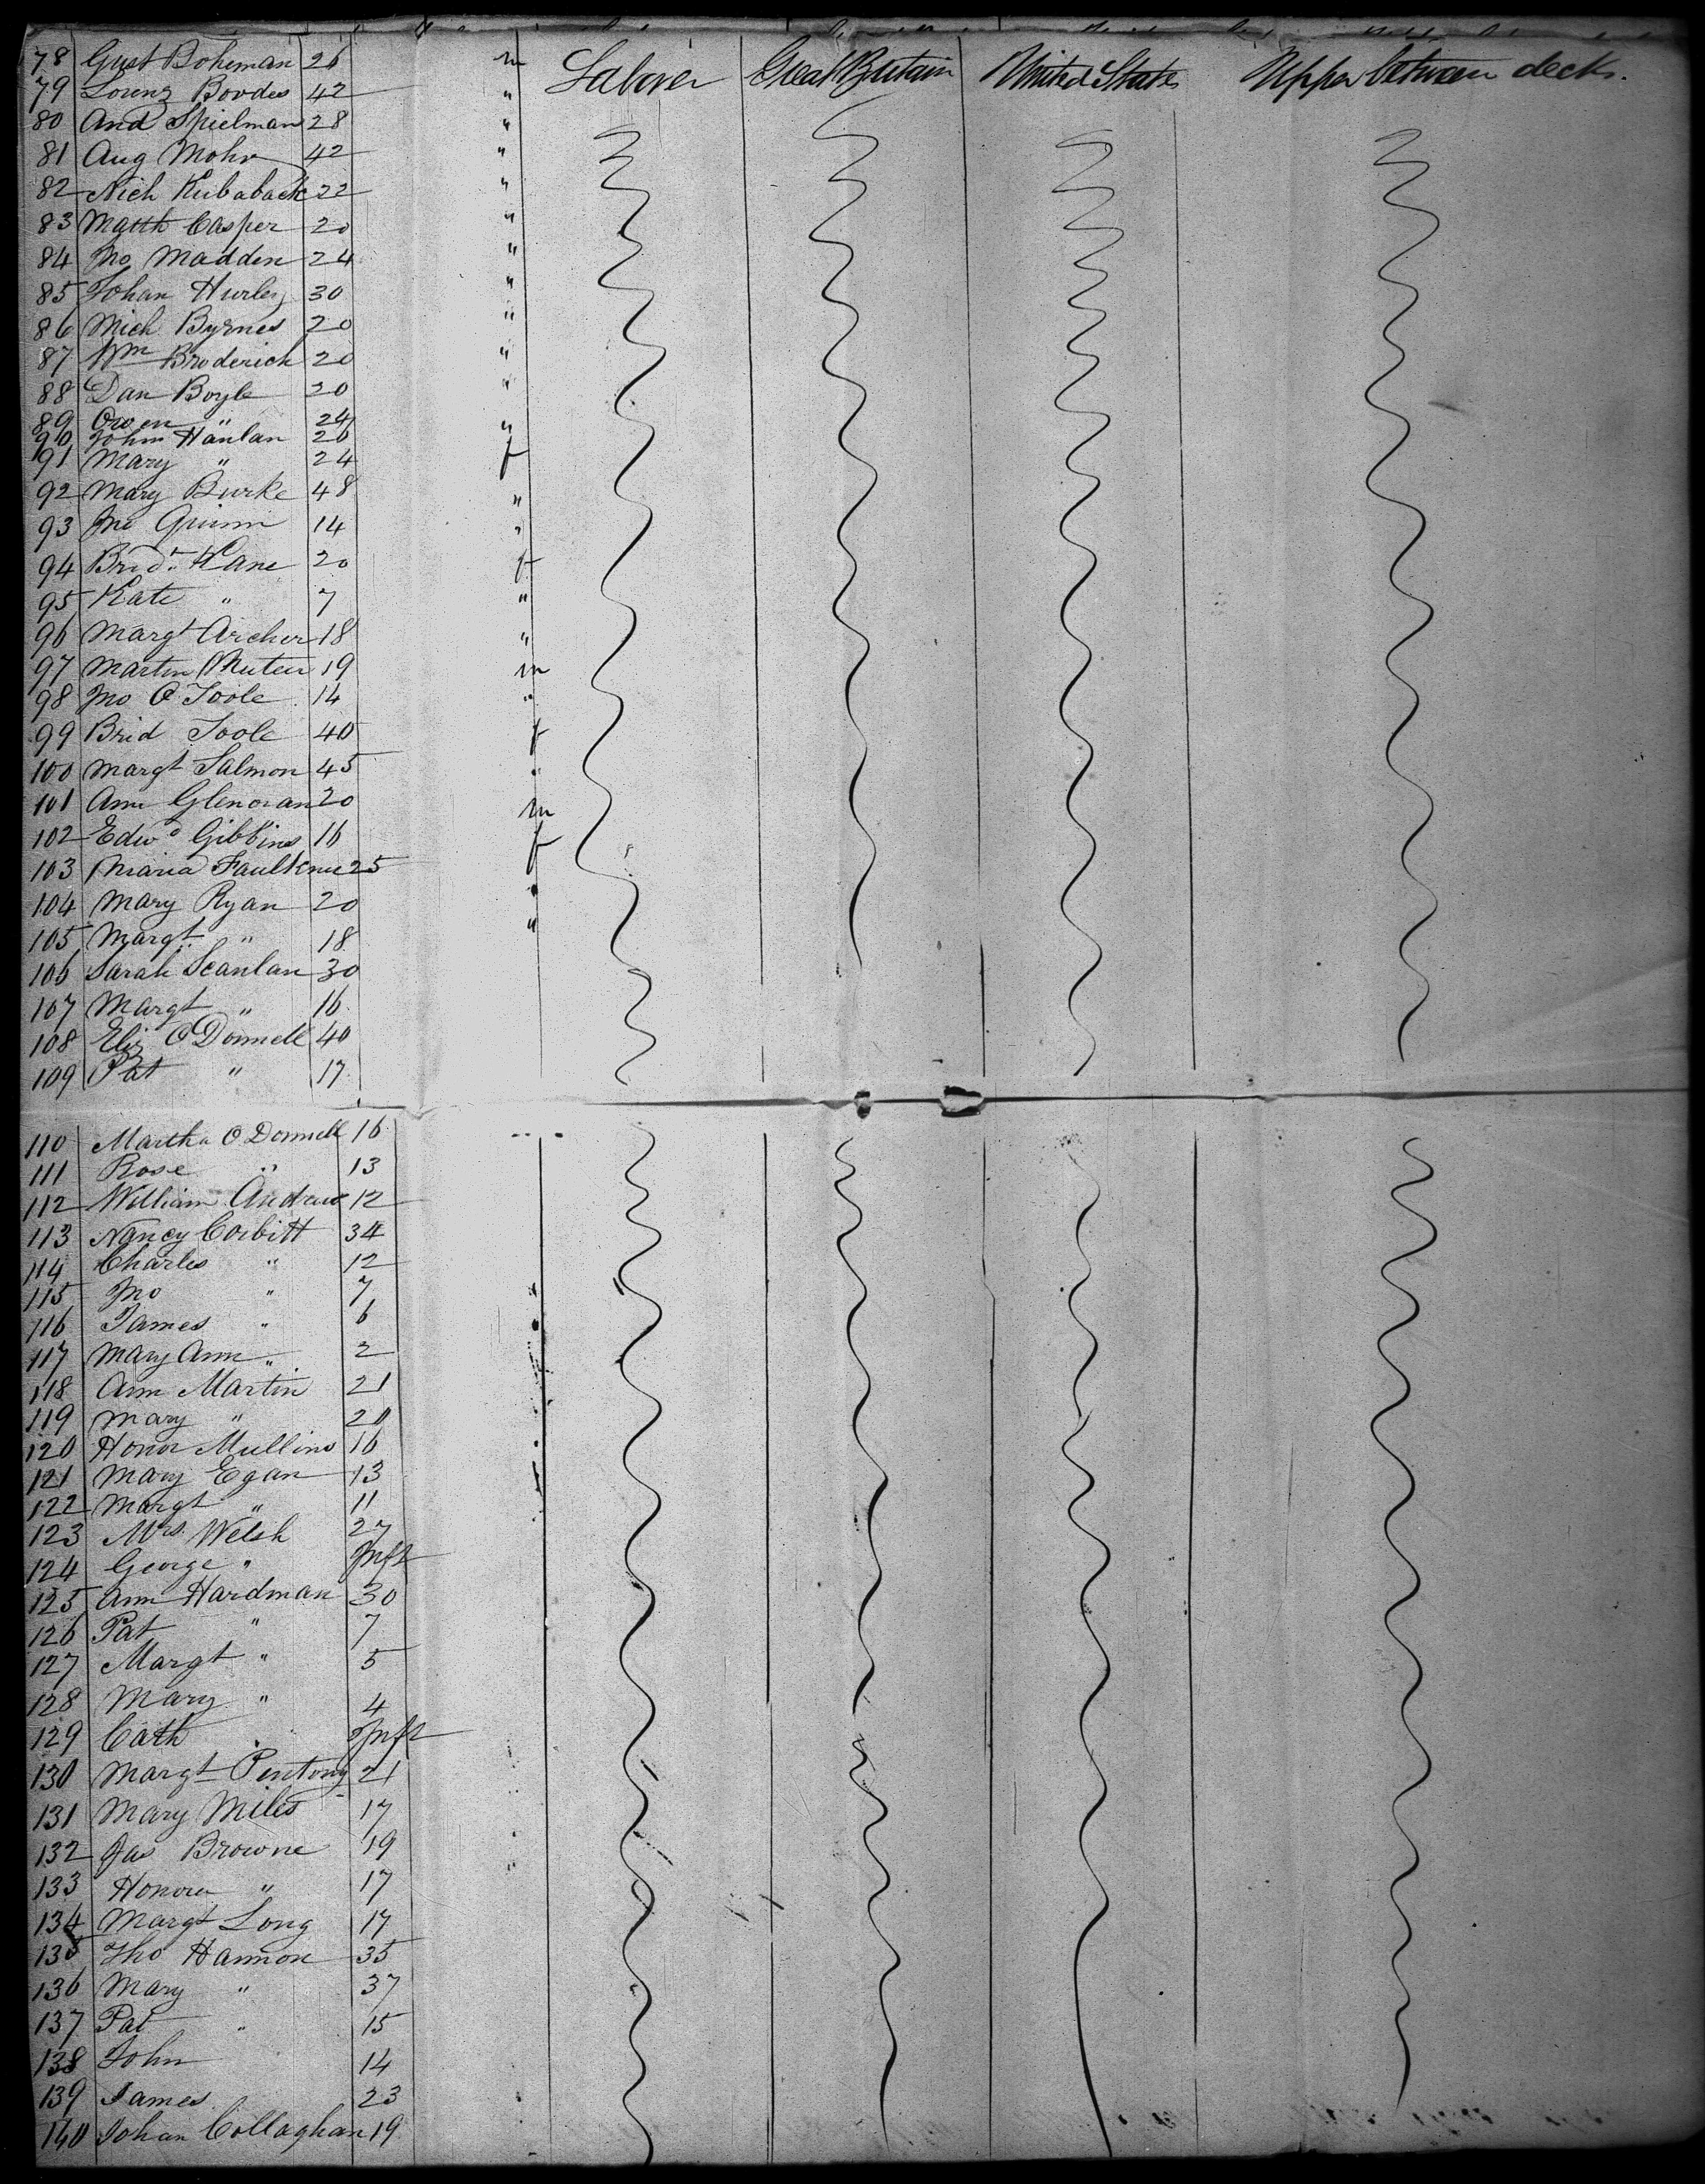 78 Gust Boheman 26 m Labover Great Britain United States Upper between decks.
79 Lorenz Bovdes 42 "
80 And Spielman 28 "
81 Aug Mohr 42 "
82 Nich Kubaback 22 "
83 Matth Casper 20 "
84 Jno Madden 24 "
85 Johan Hurley 30 "
86 Mich Byrnes 20 "
87 Wm Broderick 20 "
88 Dan Boyle 20 "
89 Owen " 24 "
90 John Hanlan 26
91 Mary " 24 f
92 Mary Burke 48 "
93 Jno Quinn 14 "
94 Bridt Kane 20 f
95 Kate " 7 "
96 Margt Archer 18 "
97 Martin 19 m
98 Jno O Toole 14 "
99 Brid Toole 40 f
100 Margt Salmon 45 "
101 Ann Glenoran 20 m
102 Edwd Gibbins 16 f
103 Maria Faulkner 25 "
104 Mary Ryan 20 "
105 Margt " 18
106 Sarah Scanlan 30
107 Margt " 16
108 Eliz O Donnell 40
109 Pat " 17
110 Martha O Donnell 16
111 Rose " 13
112 William Andrew 12
113 Nancy Corbitt 34
114 Charles " 12
115 Jno " 7
116 James " 6
117 Mary Ann " 2
118 Ann Martin 21
119 Mary " 20
120 Honor Mullins 16
121 Mary Egan 13
122 Margt " 11
123 Mrs. Welsh 27
124 George " Inft
125 Ann Hardman 30
126 Pat " 7
127 Margt " 5
128 Mary " 4
129 Cath " Inft
130 Margt 21
131 Mary Miles 17
132 Jas Browne 19
133 Honora " 17
134 Margt Long 17
135 Tho Hannon 35
136 Mary " 37
137 Pat " 15
138 John 14
139 James 23
140 Johan Collaghan 19